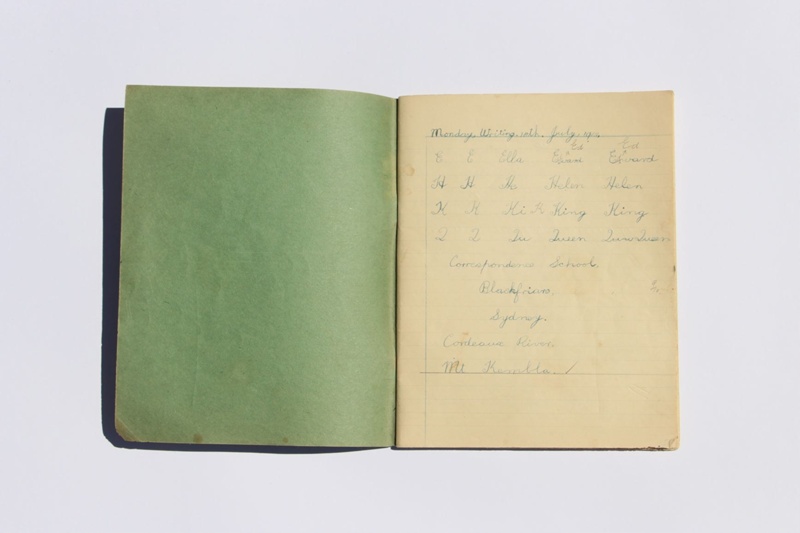 Monday, Writing, 10th. July.
Ed Ed
E E Ella Edward
H H Ha Helen Helen
K K Ki K King King
Q Q Qu Queen Queen
Correspondence School.
Blackfriars.
Sydney.
Cordeaux River.
Mt Kembla.